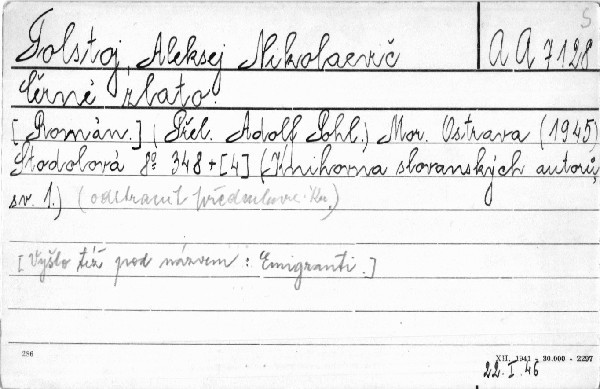 S
Tolstoj, Aleksej Nikolaevič AA 7128
Černé zlato.
[Román.] (Přel. Adolf Pohl.) Mor. Ostrava (1945)
Stodolová 8º 348+[4] (Knihovna slovanských autorů,
sv. 1.) (odstranit předmluvu
[Vyšlo též pod názvem: Emigranti.]
286 XII. 1941 - 30.000 - 2297
22. I. 46